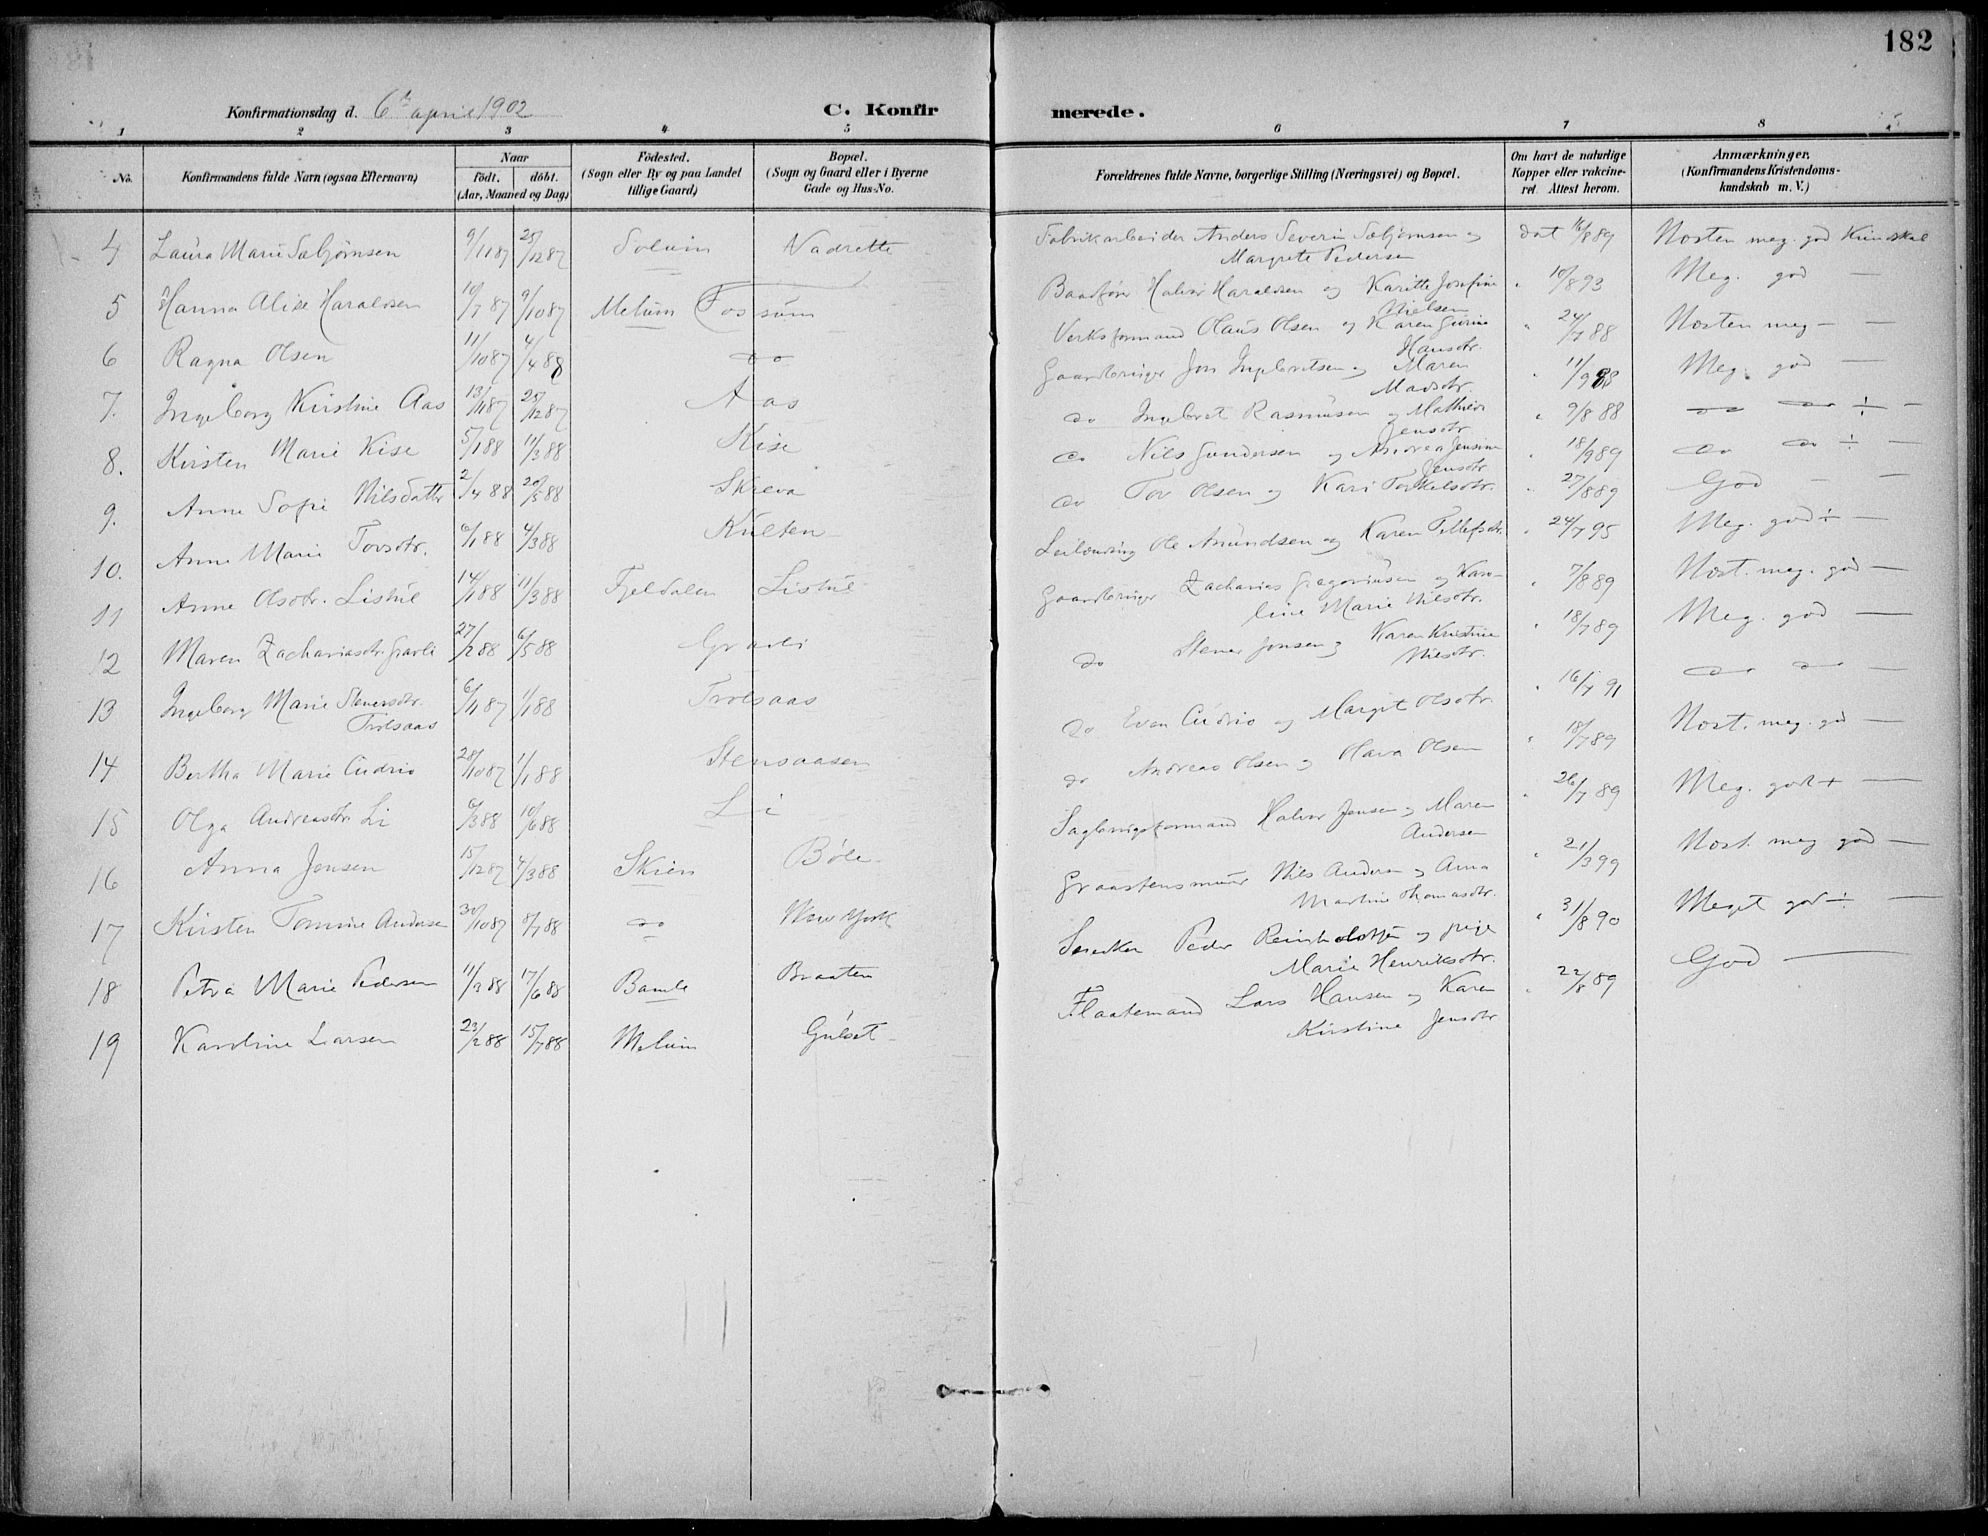 182
Konfirmationsdag d. 6te april 1902
C. Konfirmerede.
1 2 3 4 5 6 7 8
No.
Konfirmandens fulde Navn (ogsaa Efternavn)
Naar
födt. döbt.
(Aar, Maaned og Dag)
Födested.
(Sogn eller By og paa Landet
tillige Gaard)
Bopæl.
(Sogn og Gaard eller i Byerne
Gade og Hus-No.
Forældrenes fulde Navne, borgerlige Stilling (Næringsvei) og Bopæl.
Om havt de naturlige
Kopper eller vakcine-
ret. Attest herom.
Anmærkninger.
(Konfirmandens Kristendoms-
kundskab m. V.)
4 Laura Marie Sæbjørnsen 9/11 87 25/12 87 Solum Nadrette Fabrikarbeider Anders Severin Sæbjørnsen og dat 16/8 89 Næsten meg. god Kundskab
Margrete Pedersen
5 Hanna Alise Haraldsen 10/7 87 9/10 87 Melum Fossum Baadfører Halvor Haraldsen og Karitte Josefine " 10/8 93 Meg. god —
Nielsen
6 Ragna Olsen 11/10 87 4/4 88 do Verksformand Olaus Olsen og Karen Gurine " 24/7 88 Næsten meg — —
Hansdtr.
7. Ingeborg Kirstine Aas 13/11 87 25/12 87 Aas Gaardbruger Jon Ingebretsen og Maren " 11/9 88 Meg. god —
Madsdtr.
8. Kirsten Marie Kise 5/1 88 11/3 88 Kise do Ingebret Rasmussen og Mathea " 9/8 88 do do ÷ —
Jensdtr.
9. Anne Sofie Nilsdatter 2/4 88 20/5 88 Skreva do Nils Gundersen og Andrea Jensine " 18/9 89 do do ÷ —
Jensdtr.
10. Anne Marie Tovsdtr. 6/1 88 4/3 88 Kulten do Tov Olsen og Kari Torkelsdtr. " 27/8 89 God — —
11 Anne Olsdtr. Listul 14/1 88 11/3 88 Fjeldalen Listul Leilænding Ole Amundsen og Karen Tellefsdtr. " 24/7 95 Meg. god ÷ —
12 Maren Zachariasdtr. Gravli 27/2 88 6/5 88 Gravli Gaardbruger Zacharias Gregoriusen og Karo- " 7/8 89 Næst. meg. god —
line Marie Nilsdtr.
13 Ingeborg Marie Stenersdtr. 6/11 87 1/1 88 Trolsaas do Stener Jonsen og Karen Kristine " 18/7 89 Meg. god —
Trolsaas Nilsdtr.
14 Bertha Marie Cudrio 28/10 87 1/1 88 Stensaasen do Even Cudrio og Margit Olsdtr. " 16/7 91 do do —
15 Olga Andreasdtr. Li 6/3 88 10/6 88 Li do Andreas Olsen og Olava Olsen " 18/7 89 Næst. meg. god —
16 Anna Jensen 15/12 87 4/3 88 Skien Bøle Sagbrugsformand Halvor Jensen og Maren " 26/7 89 Meg. god + —
Andersen
17 Kirsten Tomine Andersen 30/10 87 8/7 88 do New York Graastensmurer Nils Andersen og Anna " 21/3 99 Næst. meg god —
Martine Thomasdtr.
18 Petra Marie Pedersen 11/3 88 17/6 88 Bamle Braaten Snedker Peder og pige " 31/8 90 Meget god ÷ —
Marie Henriksdtr.
19 Karoline Larsen 23/2 88 15/7 88 Melum Gulset Flaatemand Lars Hansen og Karen " 22/8 89 God —
Kirstine Jensdtr